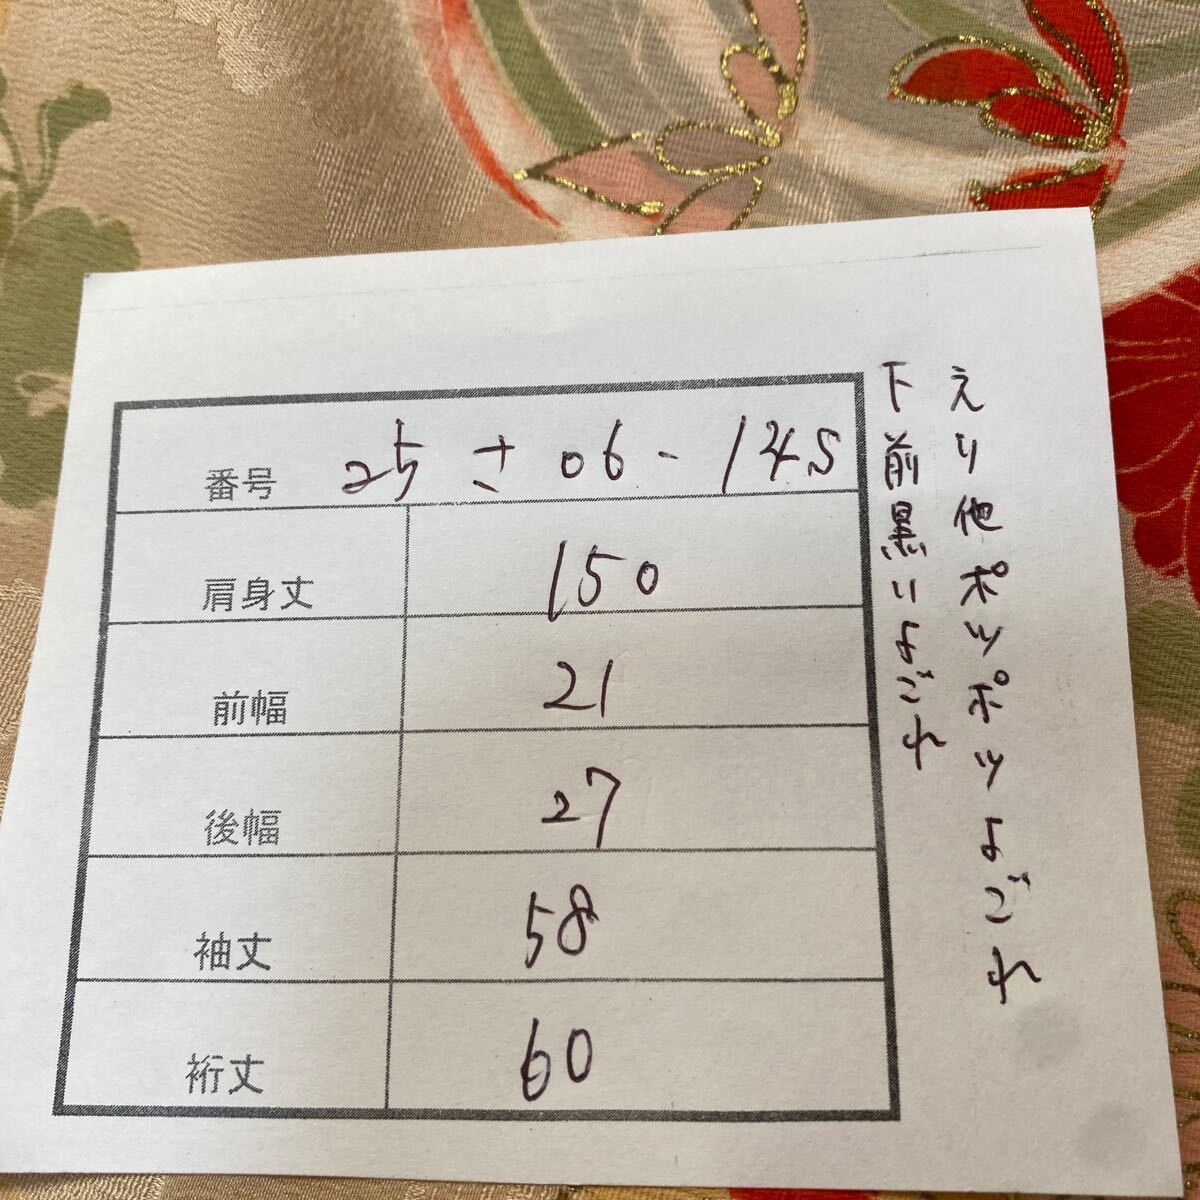 えり他ポツポツよごれ
下前黒いよごれ
番号 25 さ 06-14S
肩身丈 150
前幅 21
後幅 27
袖丈 58
裄丈 60